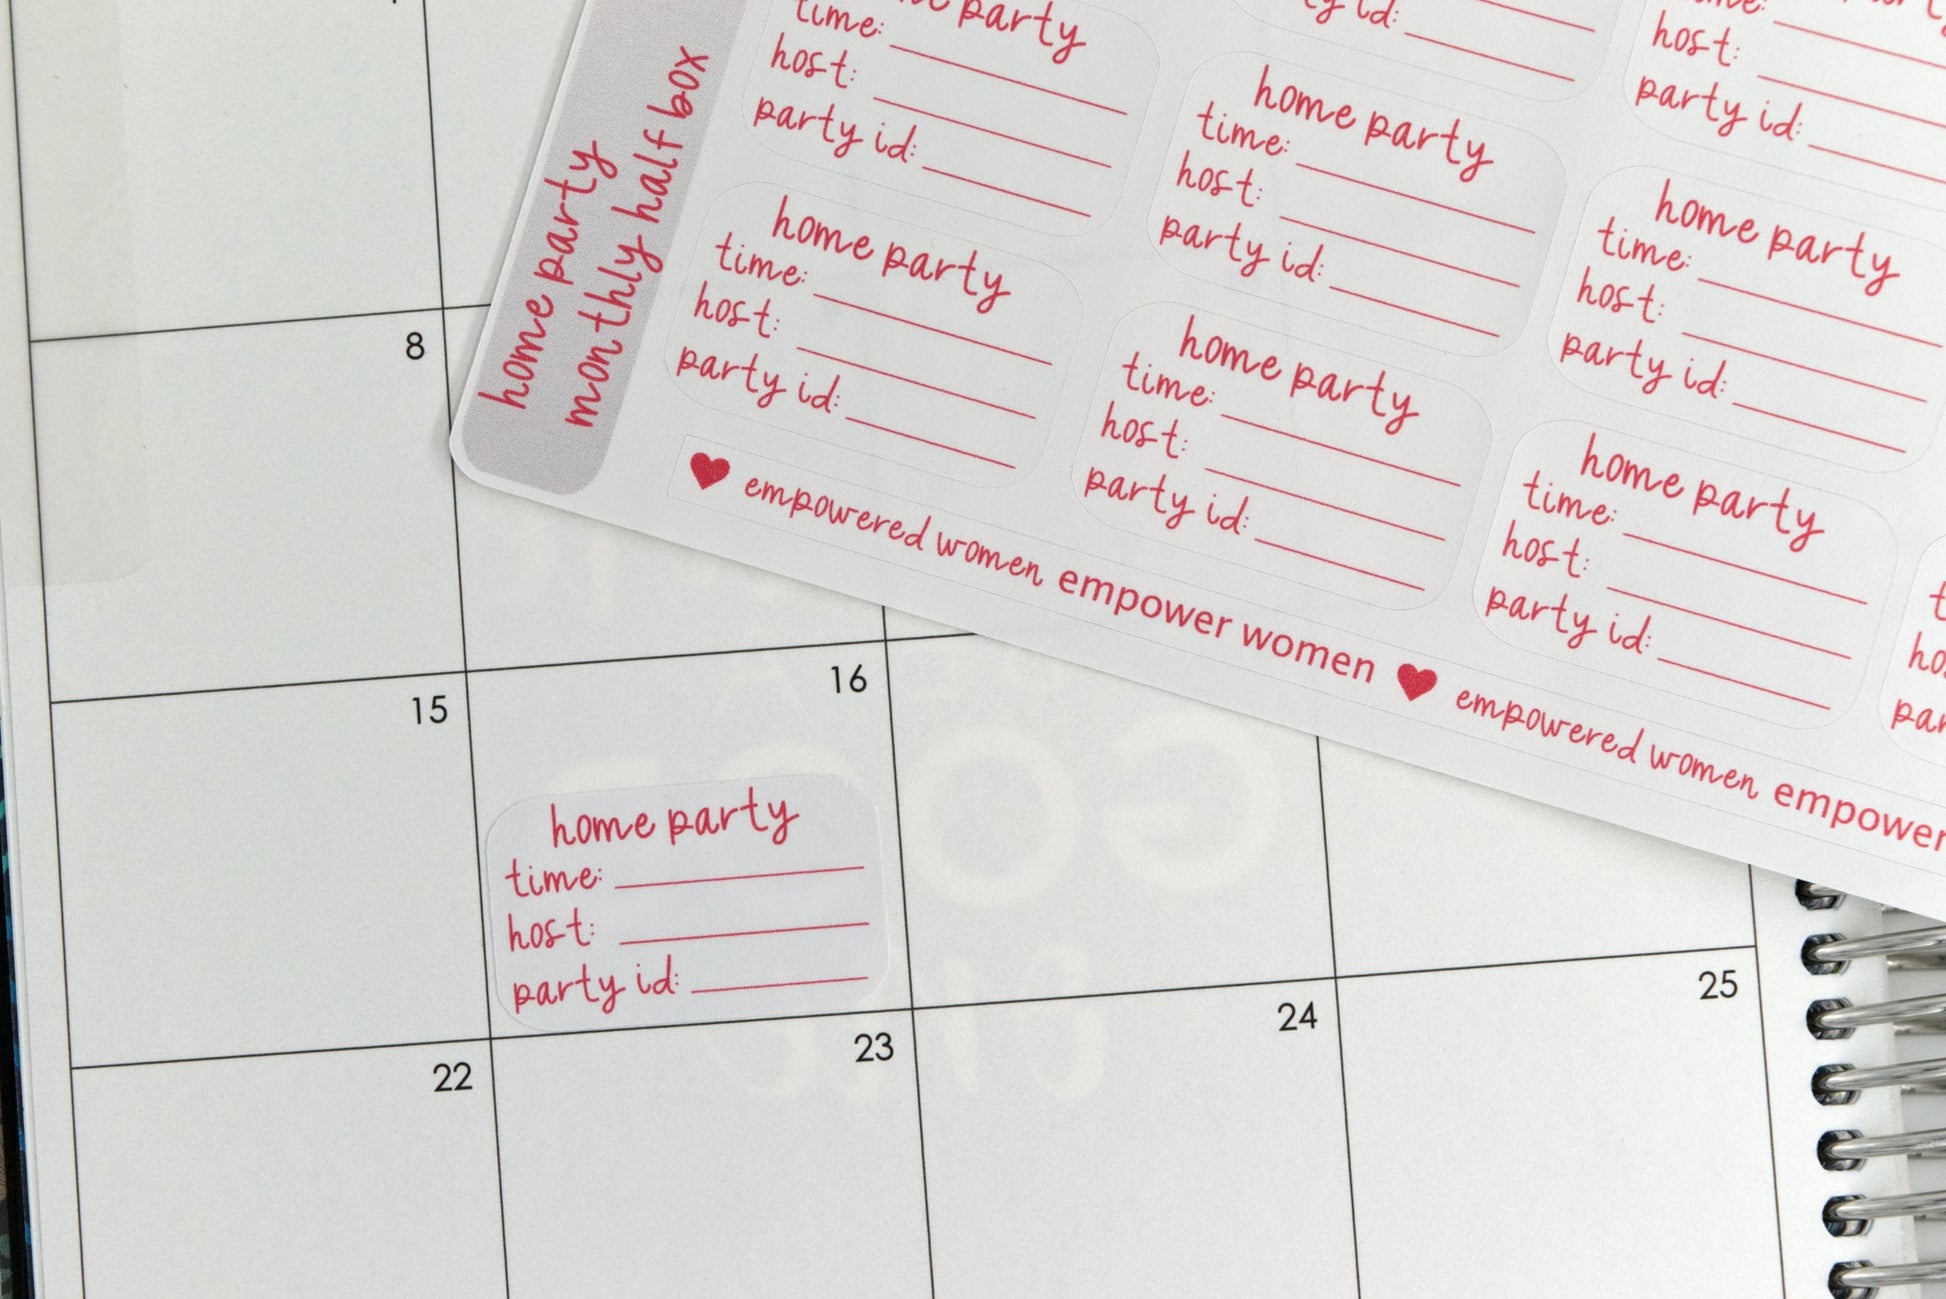 home party
monthly half box
party
time:
host:
party id:
home party
time:
host:
party id:
home party
time:
host:
party id:
home party
time:
host:
party id:
home party
time:
host:
party id:
home party
time:
host:
party id:
id:
host:
party id:
empowered women empower women empowered women empower
8
15
16
home party
time:
host:
party id:
22
23
24
25